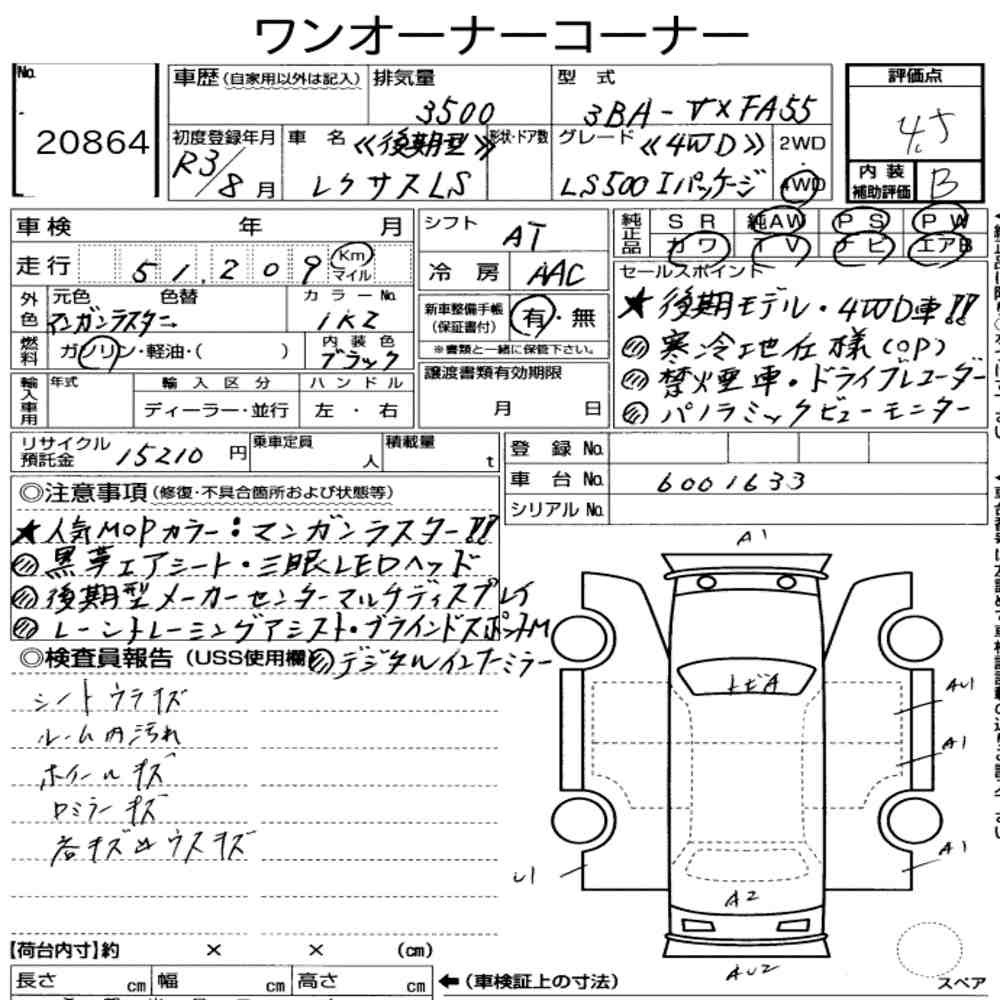 ワンオーナーコーナー
No.
20864
車歴(自家用以外は記入)
排気量
3500
型 式
3BA-VXFA55
評価点
4.5
初度登録年月
R3/8月
車 名
≪後期型≫
レクサスLS
形状・ドア数
グレード
≪4WD≫
LS500 Iパッケージ
2WD
4WD
内装
補助評価
B
車検 年 月
走行 51,209 Km マイル
シフト
AT
冷房 AAC
純正品
SR 純AW PS PW
カワ TV ナビ エアB
外色
元色 色替
マンガンラスター
カラーNo.
1K2
燃料
ガソリン・軽油・( )
内装色
ブラック
新車整備手帳
(保証書付)
有・無
※書類と一緒に保管下さい。
セールスポイント
★後期モデル・4WD車!!
寒冷地仕様(OP)
禁煙車・ドライブレコーダー
パノラミックビューモニター
輸入車用
年式
輸入区分
ディーラー・並行
ハンドル
左・右
譲渡書類有効期限
月 日
リサイクル
預託金
15210円
乗車定員
人
積載量
t
登録No.
車台No. 6001633
シリアルNo.
◎注意事項(修復・不具合箇所および状態等)
★人気MOPカラー:マンガンラスター!!
黒革エアシート・三眼LEDヘッド
後期型メーカーセンターマルチディスプレイ
レーントレーミングアシスト・ブラインドスポットM
デジタルインナーミラー
◎検査員報告(USS使用欄)
シートウラキズ
ルーム内汚れ
ホイールキズ
ロミラーキズ
各キズ凹ウスキズ
A1
トビA
AU1
A1
A1
U1
A2
AU2
スペア
【荷台内寸】約 × × (cm)
長さ cm 幅 cm 高さ cm
←(車検証上の寸法)